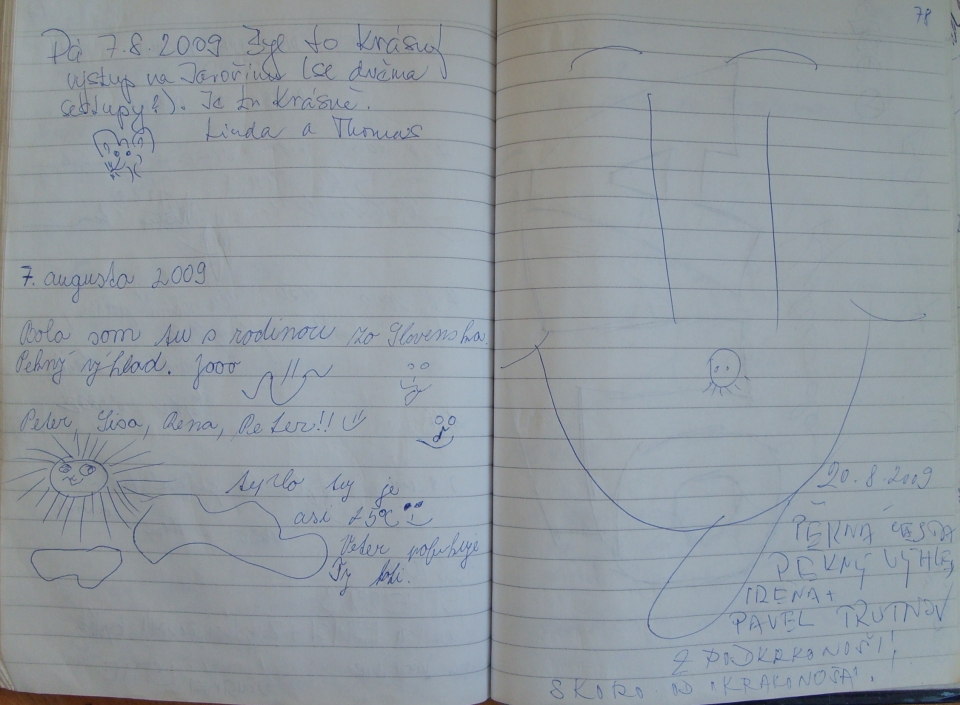 Pá 7.8.2009 Byl to krásný
výstup na Javořinu (se dvěma
sestupy!). Je tu krásně.
Linda a Thomas
7. augusta 2009
Bola som tu s rodinou zo Slovenska.
Pekný výhlad. Jooo
Peter, Lisa, Rena, Peter!!
teplo tu je
asi 25°C
Veter pofukuje
78
20.8.2009
PĚKNÁ CESTA
PĚKNÝ VÝHLED
IRENA +
PAVEL TRUTNOV
Z PODKRKONOŠÍ!
SKORO OD KRAKONOŠA!